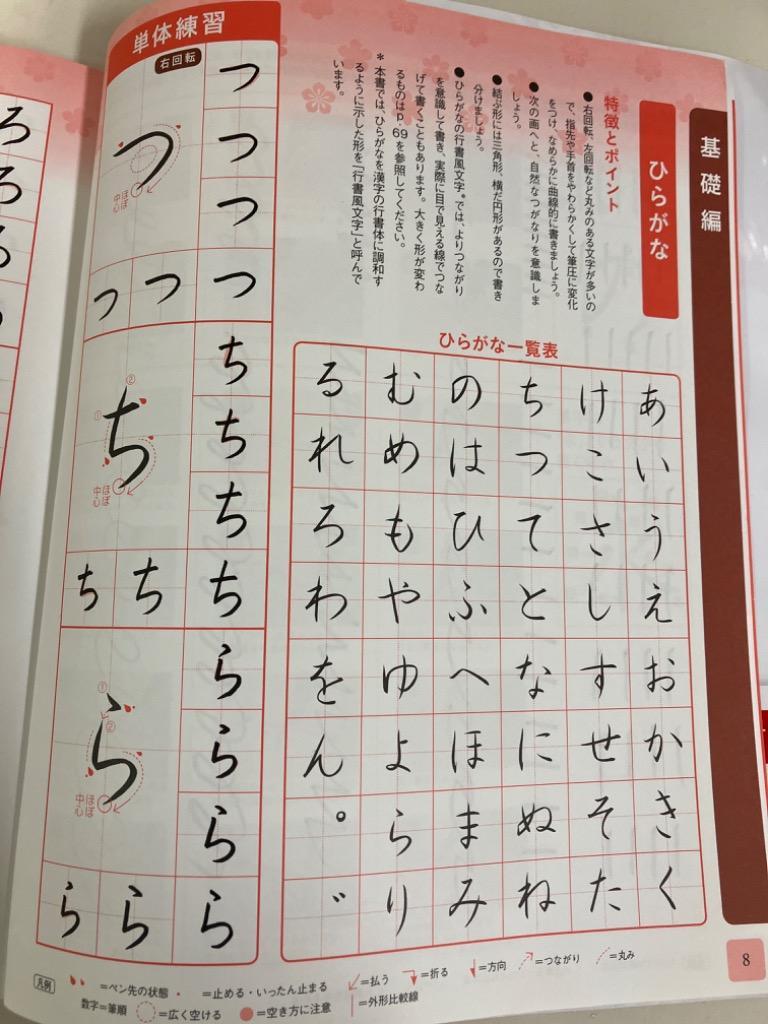 基礎編
ひらがな
特徴とポイント
●右回転、左回転など丸みのある文字が多いの
で、指先や手首をやわらかくして筆圧に変化
をつけ、なめらかに曲線的に書きましょう。
●次の画へと、自然なつながりを意識しま
しょう。
●結ぶ形には三角形、横だ円形があるので書き
分けましょう。
●ひらがなの行書風文字*では、よりつながり
を意識して書き、実際に目で見える線でつな
げて書くこともあります。大きく形が変わ
るものはp.69を参照してください。
*本書では、ひらがなを漢字の行書体に調和す
るように示した形を「行書風文字」と呼んで
います。
ひらがな一覧表
あいうえおかきく
けこさしすせそた
ちつてとなにぬね
のはひふへほまみ
むめもやゆよらり
るれろわをん。゛
単体練習
右回転
つ
つ
つ
つ
ほぼ
中心
つ
つ
つ
ち
ち
ち
①
②
ち
ほぼ
中心
ち
ち
ち
ら
ら
ら
①
②
ら
ほぼ
中心
ら
ら
ら
凡例
=ペン先の状態
=止める・いったん止まる
=払う
=折る
=方向
=つながり
=丸み
数字=筆順
=広く空ける
=空き方に注意
=外形比較線
8